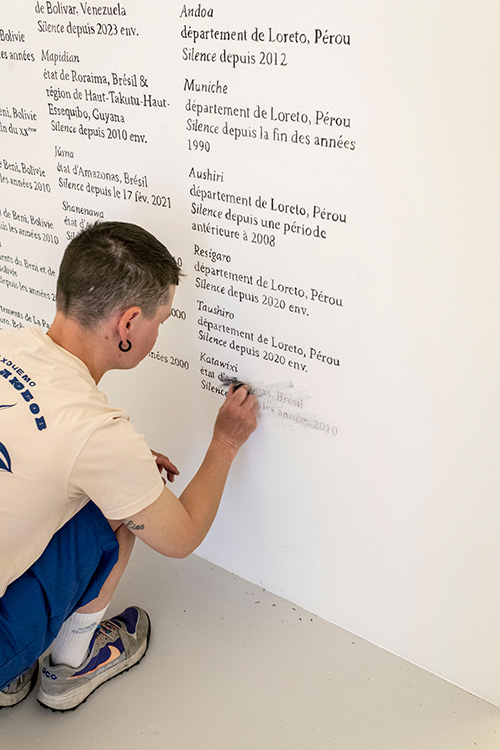 de Bolivar, Venezuela
Silence depuis 2023 env.
Mapidian
état de Roraima, Brésil &
région de Haut-Takutu-Haut-
Essequibo, Guyana
Silence depuis 2010 env.
Júma
état d'Amazonas, Brésil
Silence depuis le 17 fév. 2021
Shanenawa
Andoa
département de Loreto, Pérou
Silence depuis 2012
Muniche
département de Loreto, Pérou
Silence depuis la fin des années
1990
Aushiri
département de Loreto, Pérou
Silence depuis une période
antérieure à 2008
Resígaro
département de Loreto, Pérou
Silence depuis 2020 env.
Taushiro
département de Loreto, Pérou
Silence depuis 2020 env.
Katawixi
état d'Amazonas, Brésil
Silence les années 2010
Bolivie
les années
Beni, Bolivie
fin du xxème
Beni, Bolivie
les années 2010
de Beni, Bolivie
les années 2010
ments du Beni et de
Bolivie
depuis les années
tements de La Pa
années 2000
ACG